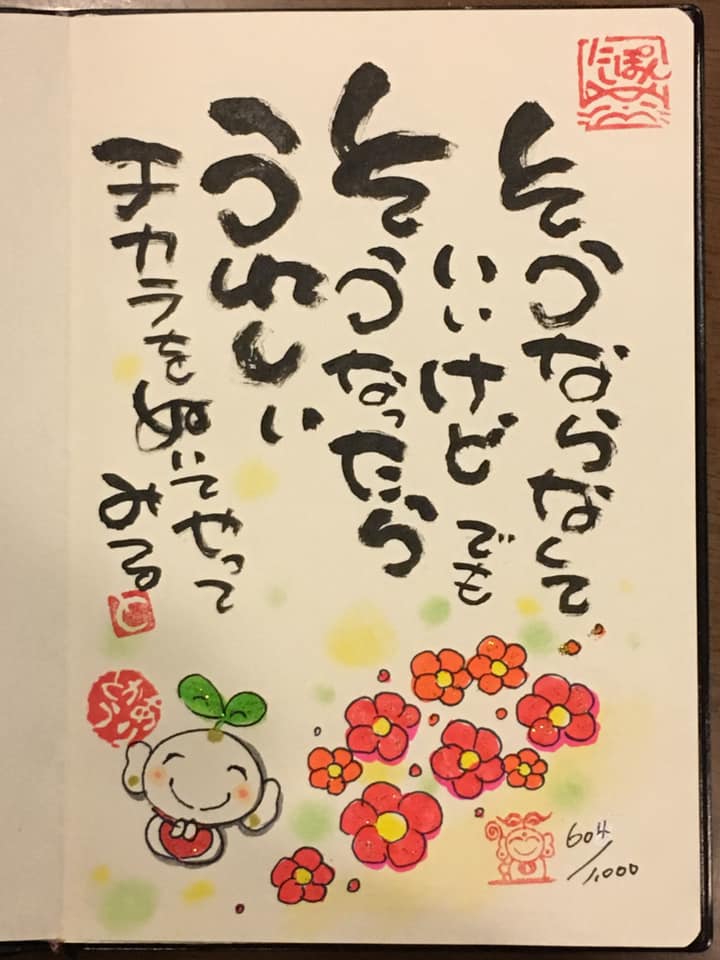 そうならなくて
いいけど でも
そうなったら
うれしい
チカラをぬいてやって
みる
604/1,000